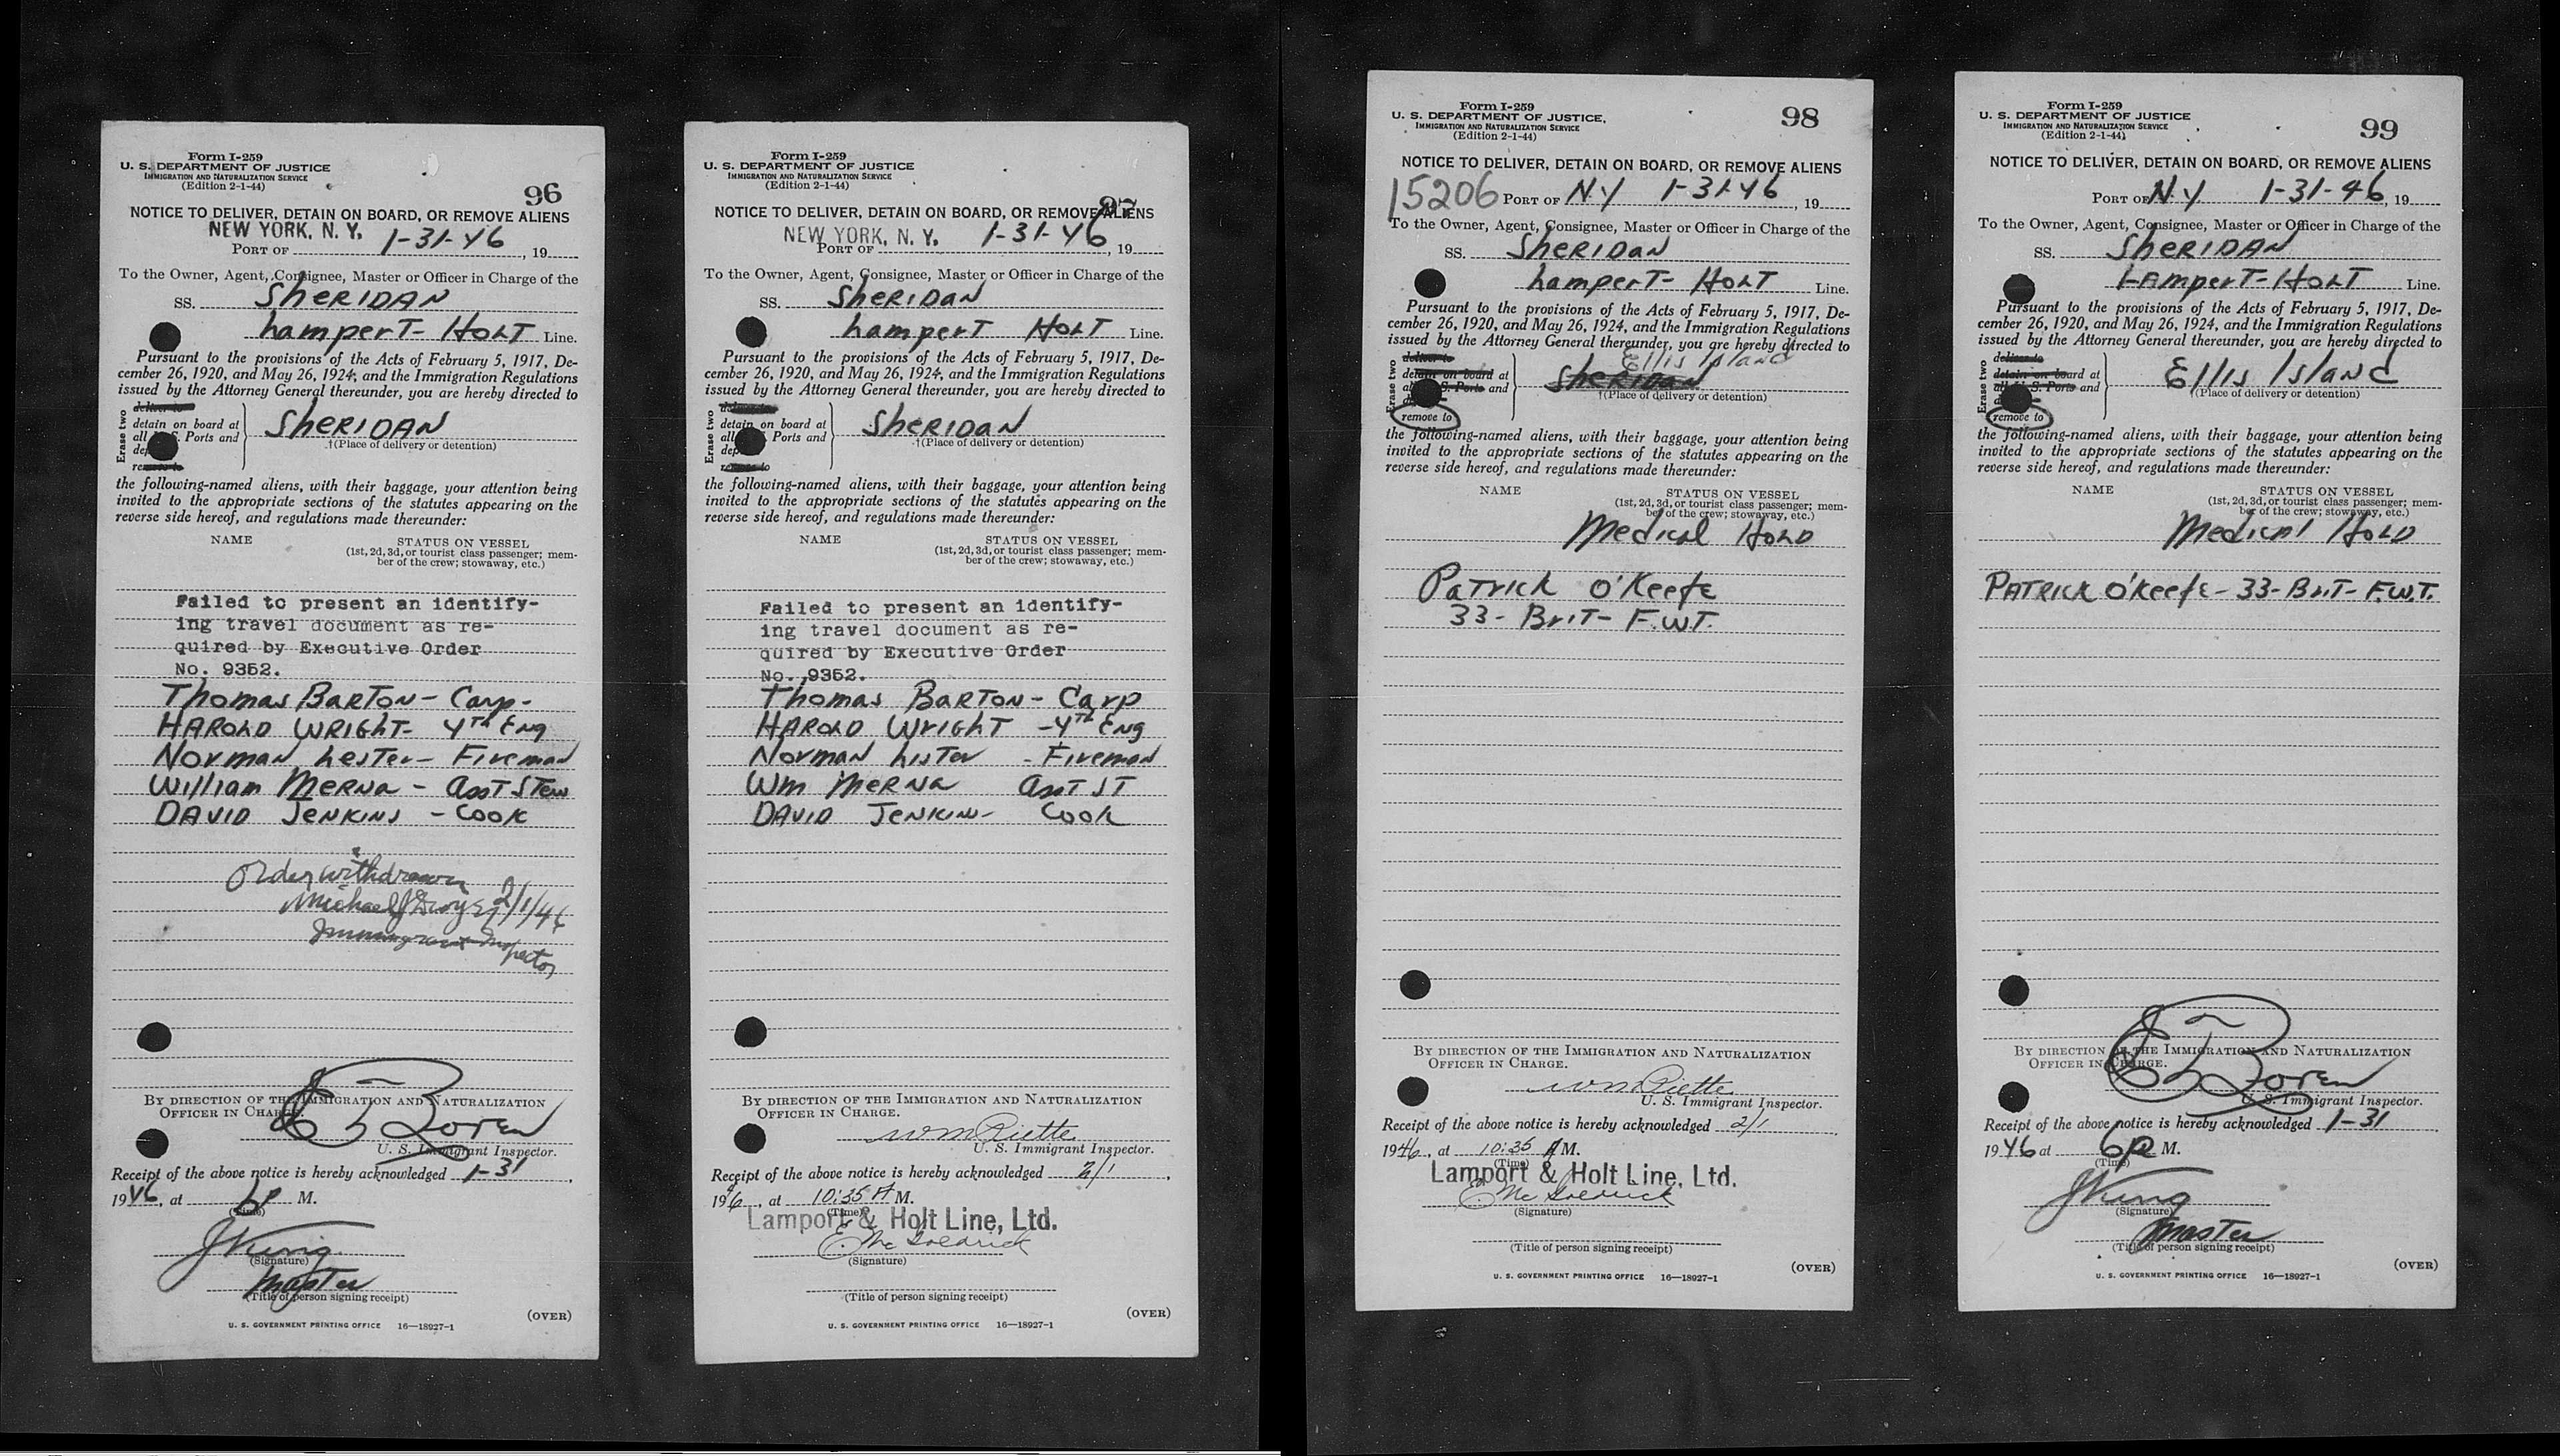 Form I-259
U. S. DEPARTMENT OF JUSTICE
IMMIGRATION AND NATURALIZATION SERVICE
(Edition 2-1-44)
96
NOTICE TO DELIVER, DETAIN ON BOARD, OR REMOVE ALIENS
NEW YORK, N. Y. 1-31-46
PORT OF , 19
To the Owner, Agent, Consignee, Master or Officer in Charge of the
SS. SHERIDAN
LAMPERT- HOLT Line.
Pursuant to the provisions of the Acts of February 5, 1917, De-
cember 26, 1920, and May 26, 1924, and the Immigration Regulations
issued by the Attorney General thereunder, you are hereby directed to
Erase two
deliver to
detain on board at
all S. Ports and
SHERIDAN
†(Place of delivery or detention)
remove to
the following-named aliens, with their baggage, your attention being
invited to the appropriate sections of the statutes appearing on the
reverse side hereof, and regulations made thereunder:
NAME STATUS ON VESSEL
(1st, 2d, 3d, or tourist class passenger; mem-
ber of the crew; stowaway, etc.)
Failed to present an identify-
ing travel document as re-
quired by Executive Order
No. 9352.
Thomas BARTON - Carp -
HAROLD WRIGHT - 4TH Eng
Norman Lester - Fireman
William MERNA - ASST Stew
DAVID JENKINS - COOK
Order withdrawn
2/1/46
Immigrant Inspector
BY DIRECTION OF THE IMMIGRATION AND NATURALIZATION
OFFICER IN CHARGE.
Boren
U. S. Immigrant Inspector.
Receipt of the above notice is hereby acknowledged 1-31,
1946, at 6P M.
(Time)
J King
(Signature)
Master
(Title of person signing receipt)
(OVER)
U. S. GOVERNMENT PRINTING OFFICE 16—18927-1
Form I-259
U. S. DEPARTMENT OF JUSTICE
IMMIGRATION AND NATURALIZATION SERVICE
(Edition 2-1-44)
97
NOTICE TO DELIVER, DETAIN ON BOARD, OR REMOVE ALIENS
NEW YORK, N. Y. 1-31-46
PORT OF , 19
To the Owner, Agent, Consignee, Master or Officer in Charge of the
SS. SHERIDAN
LAMPERT HOLT Line.
Pursuant to the provisions of the Acts of February 5, 1917, De-
cember 26, 1920, and May 26, 1924, and the Immigration Regulations
issued by the Attorney General thereunder, you are hereby directed to
Erase two
detain on board at
all Ports and
SHERIDAN
†(Place of delivery or detention)
remove to
the following-named aliens, with their baggage, your attention being
invited to the appropriate sections of the statutes appearing on the
reverse side hereof, and regulations made thereunder:
NAME STATUS ON VESSEL
(1st, 2d, 3d, or tourist class passenger; mem-
ber of the crew; stowaway, etc.)
Failed to present an identify-
ing travel document as re-
quired by Executive Order
No. 9352.
Thomas BARTON - Carp
HAROLD WRIGHT - 4TH Eng
Norman Lister - Fireman
Wm MERNA ASST ST
DAVID JENKINS Cook
BY DIRECTION OF THE IMMIGRATION AND NATURALIZATION
OFFICER IN CHARGE.
U. S. Immigrant Inspector.
Receipt of the above notice is hereby acknowledged 2/1,
1946, at 10:35 A M.
(Time)
Lamport & Holt Line, Ltd.
E. McGoldrick
(Signature)
(Title of person signing receipt)
(OVER)
U. S. GOVERNMENT PRINTING OFFICE 16—18927-1
Form I-259
U. S. DEPARTMENT OF JUSTICE,
IMMIGRATION AND NATURALIZATION SERVICE
(Edition 2-1-44)
98
NOTICE TO DELIVER, DETAIN ON BOARD, OR REMOVE ALIENS
15206 PORT OF N.Y 1-31-46, 19
To the Owner, Agent, Consignee, Master or Officer in Charge of the
SS. SHERIDAN
LAMPERT- HOLT Line.
Pursuant to the provisions of the Acts of February 5, 1917, De-
cember 26, 1920, and May 26, 1924, and the Immigration Regulations
issued by the Attorney General thereunder, you are hereby directed to
Ellis Island
Erase two
deliver to
detain on board at
S. Ports and
SHERIDAN
†(Place of delivery or detention)
remove to
the following-named aliens, with their baggage, your attention being
invited to the appropriate sections of the statutes appearing on the
reverse side hereof, and regulations made thereunder:
NAME STATUS ON VESSEL
(1st, 2d, 3d, or tourist class passenger; mem-
ber of the crew; stowaway, etc.)
Medical HOLD
PATRICK O'Keefe
33- BRIT- F.W.T.
BY DIRECTION OF THE IMMIGRATION AND NATURALIZATION
OFFICER IN CHARGE.
U. S. Immigrant Inspector.
Receipt of the above notice is hereby acknowledged 2/1,
1946, at 10:35 A M.
(Time)
Lamport & Holt Line, Ltd.
E. McGoldrick
(Signature)
(Title of person signing receipt)
(OVER)
U. S. GOVERNMENT PRINTING OFFICE 16—18927-1
Form I-259
U. S. DEPARTMENT OF JUSTICE
IMMIGRATION AND NATURALIZATION SERVICE
(Edition 2-1-44)
99
NOTICE TO DELIVER, DETAIN ON BOARD, OR REMOVE ALIENS
PORT OF N.Y. 1-31-46, 19
To the Owner, Agent, Consignee, Master or Officer in Charge of the
SS. SHERIDAN
LAMPERT- HOLT Line.
Pursuant to the provisions of the Acts of February 5, 1917, De-
cember 26, 1920, and May 26, 1924, and the Immigration Regulations
issued by the Attorney General thereunder, you are hereby directed to
Erase two
deliver to
detain on board at
all U. S. Ports and
Ellis Island
†(Place of delivery or detention)
remove to
the following-named aliens, with their baggage, your attention being
invited to the appropriate sections of the statutes appearing on the
reverse side hereof, and regulations made thereunder:
NAME STATUS ON VESSEL
(1st, 2d, 3d, or tourist class passenger; mem-
ber of the crew; stowaway, etc.)
Medical HOLD
PATRICK O'Keefe - 33- BRIT- F.W.T.
BY DIRECTION OF THE IMMIGRATION AND NATURALIZATION
OFFICER IN CHARGE.
Boren
U. S. Immigrant Inspector.
Receipt of the above notice is hereby acknowledged 1-31
1946 at 6P M.
(Time)
J King
(Signature)
Master
(Title of person signing receipt)
(OVER)
U. S. GOVERNMENT PRINTING OFFICE 16—18927-1